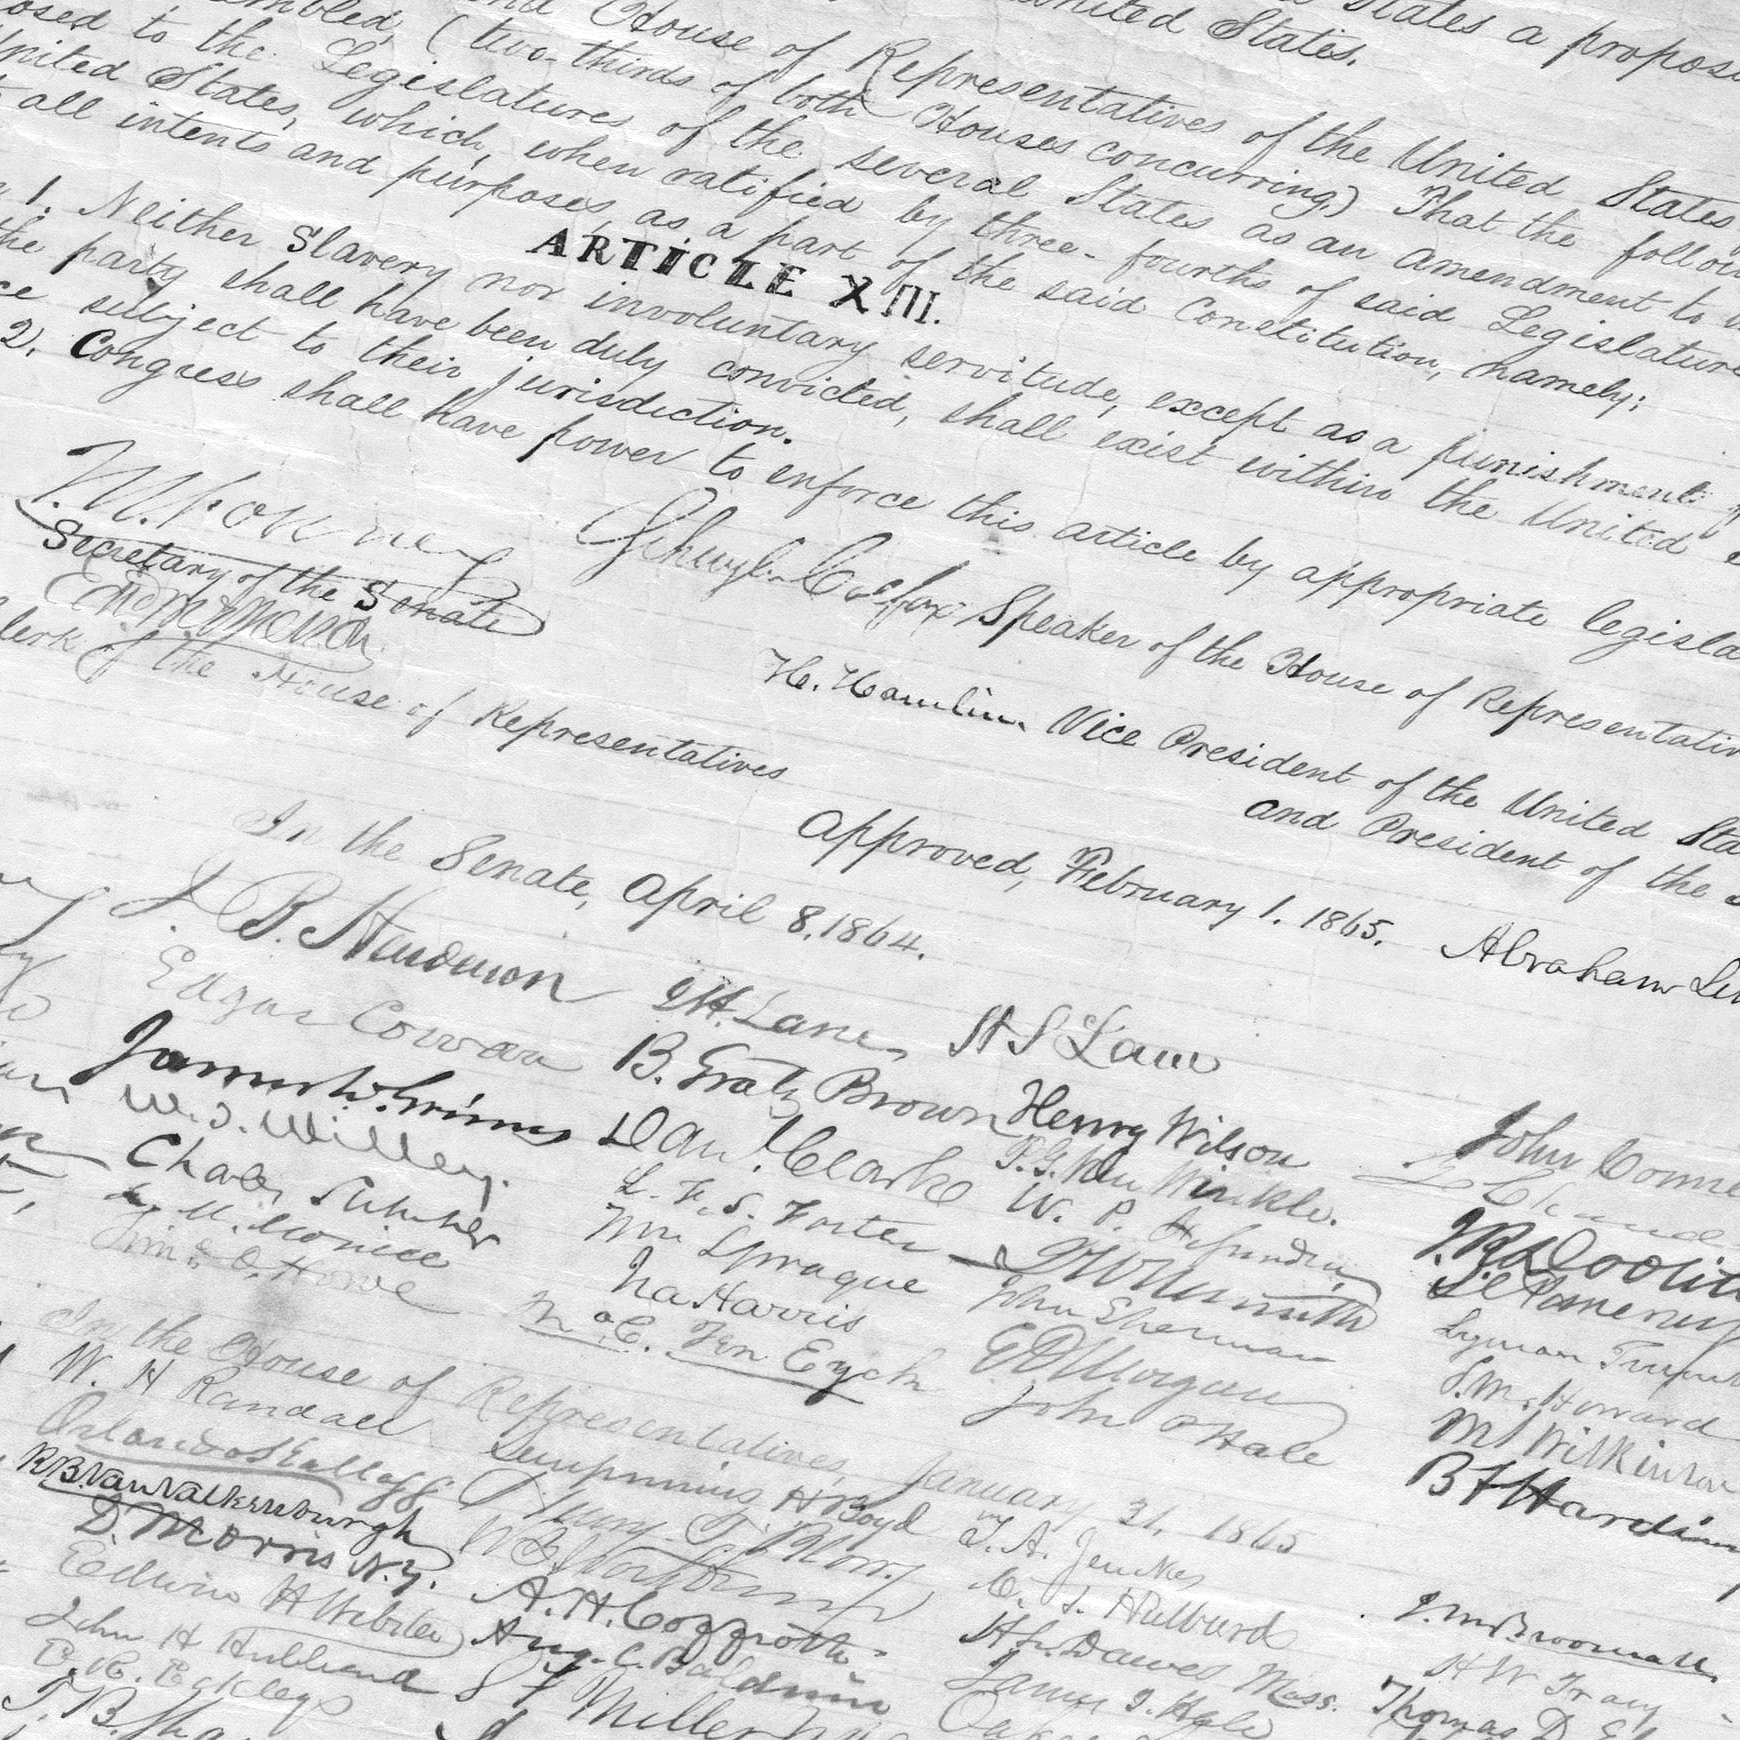 States a proposi
United States.
embled, (two-thirds of both Houses concurring,) That the follow
and House of Representatives of the United States
osed to the Legislatures of the several States as an amendment to
United States, which, when ratified by three-fourths of said Legislature
all intents and purposes, as a part of the said Constitution, namely:
ARTICLE XIII.
1. Neither Slavery nor involuntary servitude, except as a punishment
the party shall have been duly convicted, shall exist within the United
ce subject to their jurisdiction.
2. Congress shall have power to enforce this article by appropriate legisla
Schuyler Colfax Speaker of the House of Representativ
J.W. Forney
Secretary of the Senate
Edwd McPherson
Clerk of the House of Representatives
H. Hamlin Vice President of the United Sta
and President of the
Approved, February 1. 1865. Abraham Lin
In the Senate, April 8, 1864.
J. B. Henderson
J H. Lane
H S Lane
Edgar Cowan
B. Gratz Brown
Henry Wilson
John Conne
James W. Grimes
Dan. Clark
P. G. Van Winkle.
W. T. Willey.
L. F. S. Foster
W. P. Fessenden
J. R. Doolitt
Charles Sumner
Wm Sprague
S C Pomeroy
L. M. Morrill
Ira Harris
John Sherman
Lyman Trumb
Tim: O. Howe
Jno. C. Ten Eyck
E D Morgan
J. M. Howard
John P Hale
M S Wilkinson
B F Hardin
In the House of Representatives, January 31, 1865
W. H Randall
Sempronius H Boyd
T. A. Jenckes
Orlando Kellogg
Henry T. Blow
C. T. Hulburd
J. M. Broomall
R B. Van Valkenburgh
H. L. Dawes Mass.
H W Tracy
D. Morris N.Y.
A. H. Coffroth
Edwin H Webster
Aug. C. Baldwin
James T. Hale
Thomas D. El
John H Hubbard
S F Miller
Oakes
E. R. Eckley
T. B. Sha